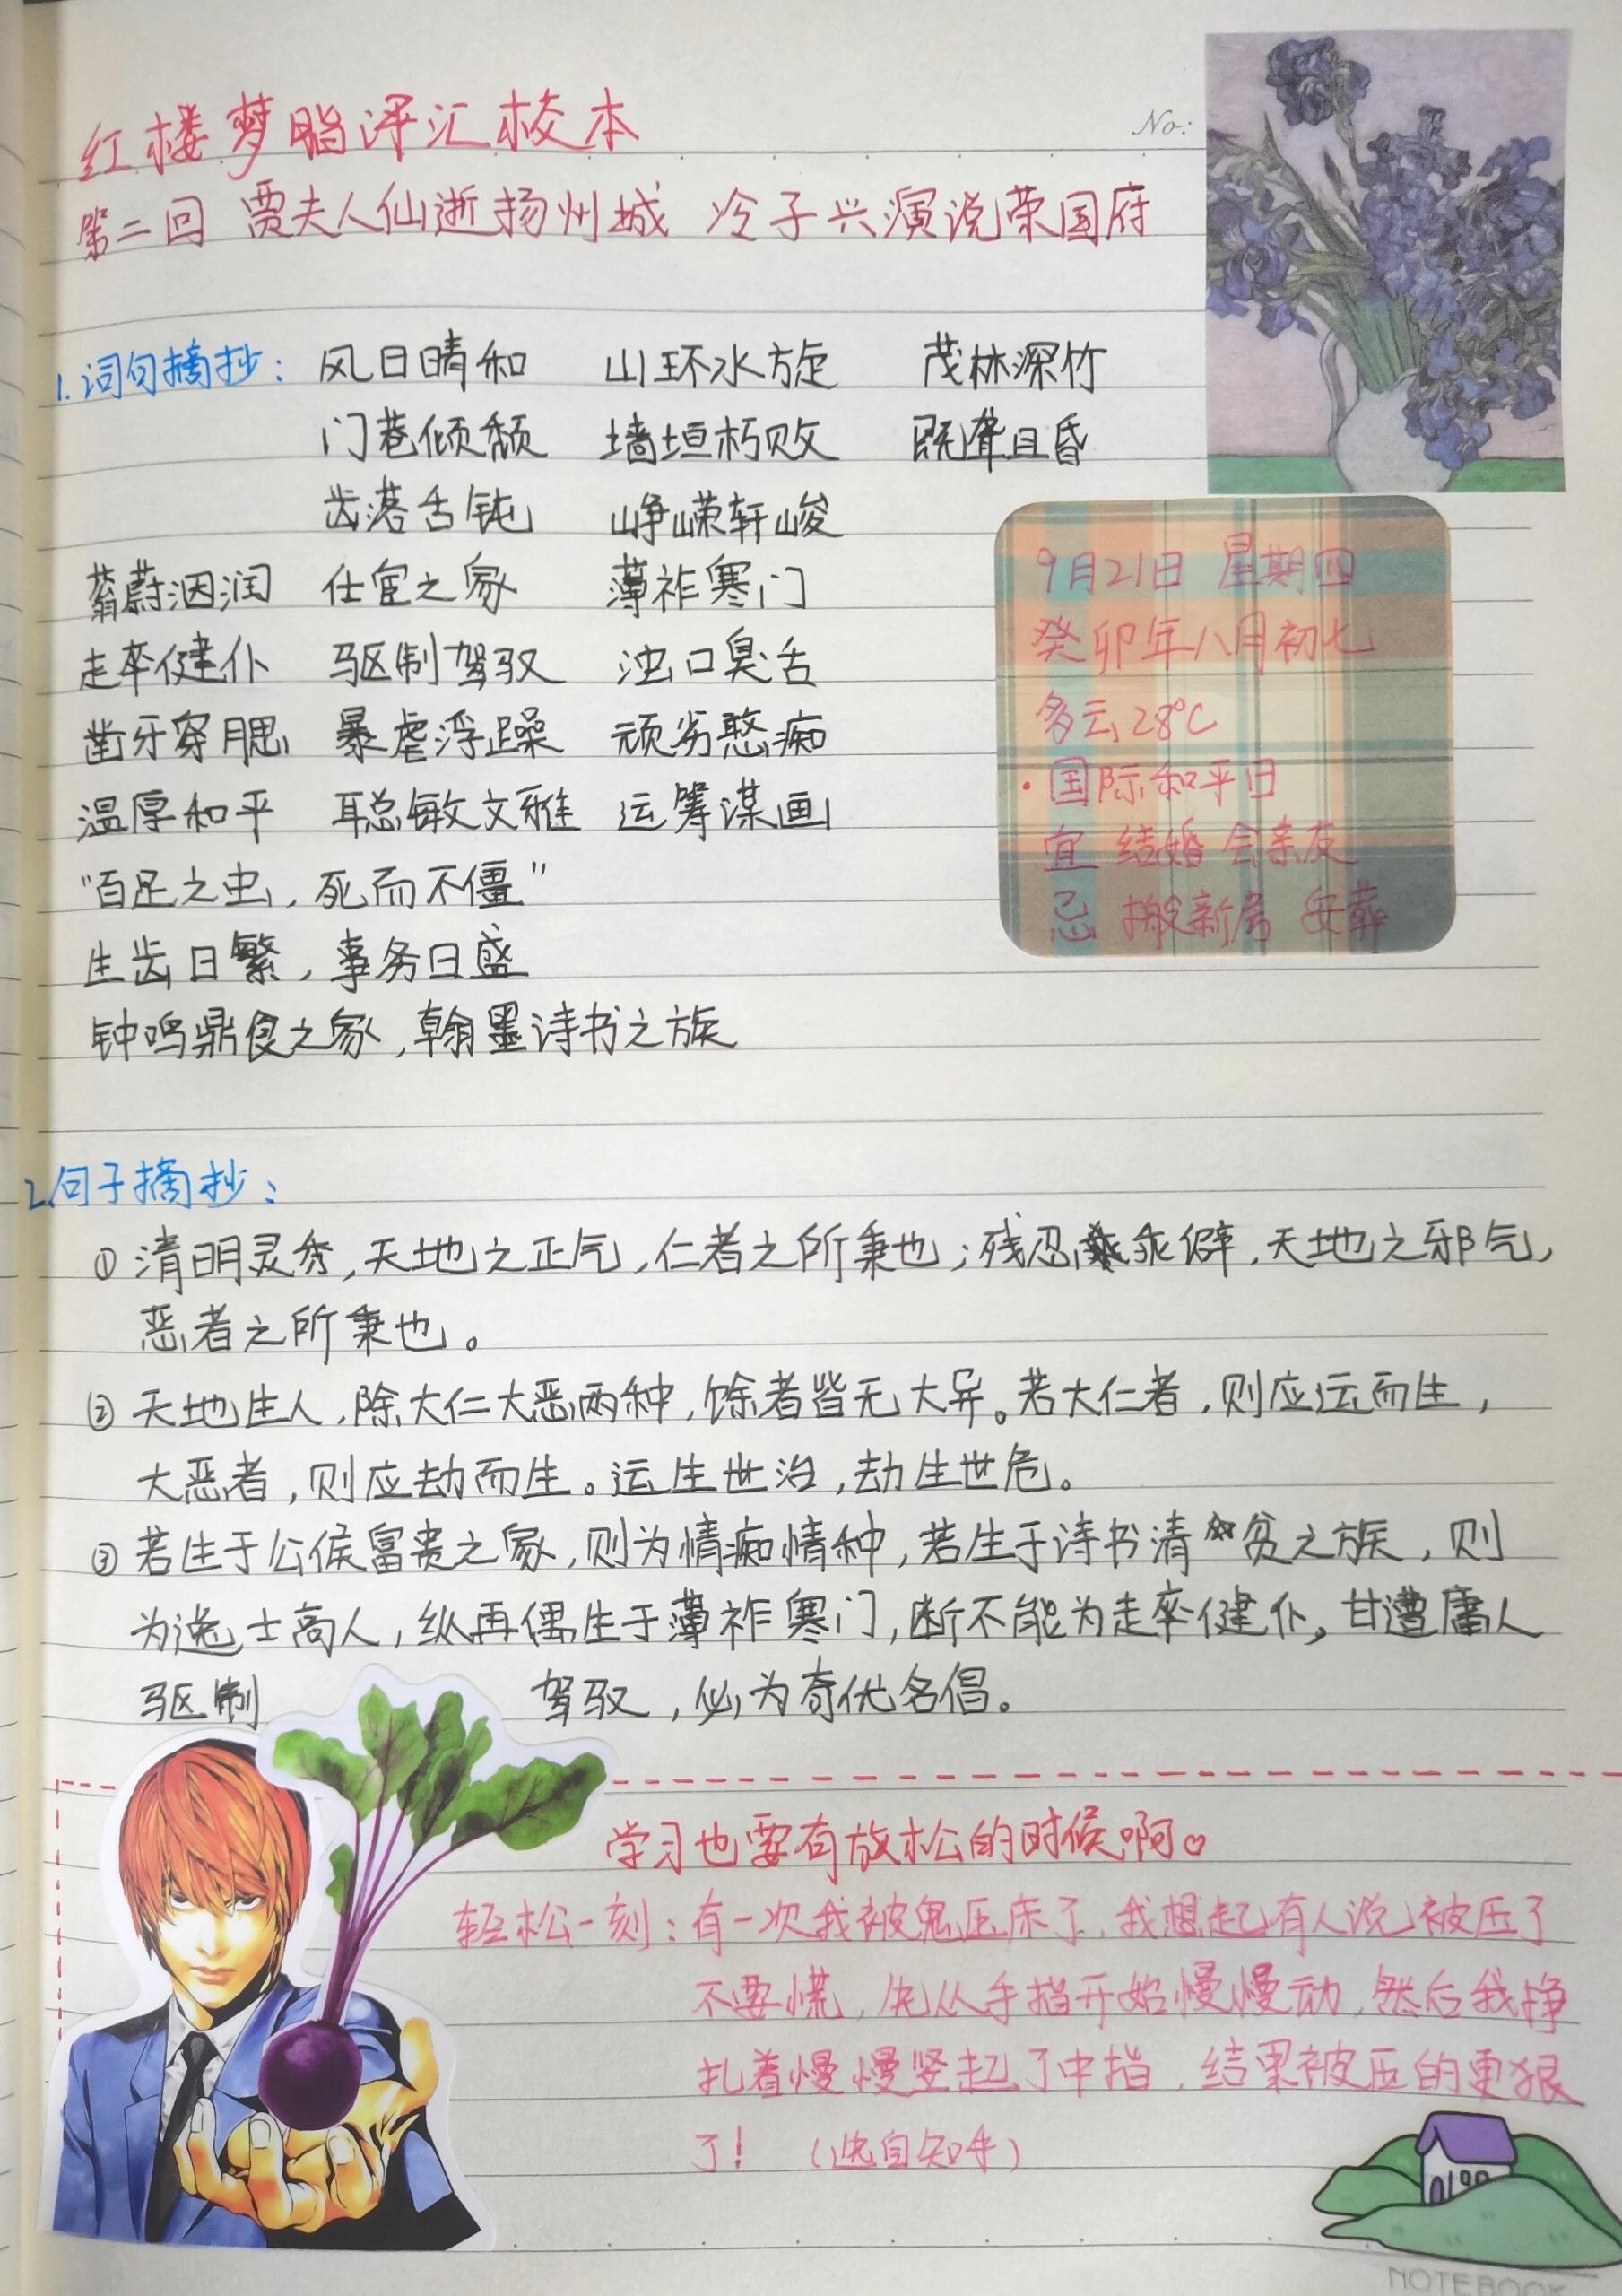 No:
红楼梦脂评汇校本
第二回 贾夫人仙逝扬州城 冷子兴演说荣国府
1.词句摘抄: 风日晴和 山环水旋 茂林深竹
门巷倾颓 墙垣朽败 既聋且昏
齿落舌钝 峥嵘轩峻
蓊蔚洇润 仕宦之家 薄祚寒门
走卒健仆 驱制驾驭 浊口臭舌
凿牙穿腮 暴虐浮躁 顽劣憨痴
温厚和平 聪敏文雅 运筹谋画
“百足之虫,死而不僵”
生齿日繁,事务日盛
钟鸣鼎食之家,翰墨诗书之族
9月21日 星期四
癸卯年八月初七
多云 28℃
·国际和平日
宜 结婚 会亲友
忌 搬新房 安葬
2.句子摘抄:
① 清明灵秀,天地之正气,仁者之所秉也;残忍乖僻,天地之邪气,
恶者之所秉也。
② 天地生人,除大仁大恶两种,馀者皆无大异。若大仁者,则应运而生,
大恶者,则应劫而生。运生世治,劫生世危。
③ 若生于公侯富贵之家,则为情痴情种,若生于诗书清贫之族,则
为逸士高人,纵再偶生于薄祚寒门,断不能为走卒健仆,甘遭庸人
驱制 驾驭,必为奇优名倡。
学习也要有放松的时候啊♡
轻松一刻:有一次我被鬼压床了,我想起有人说被压了
不要慌,先从手指开始慢慢动,然后我挣
扎着慢慢竖起了中指,结果被压的更狠
了!(选自知乎)
NOTEBOOK